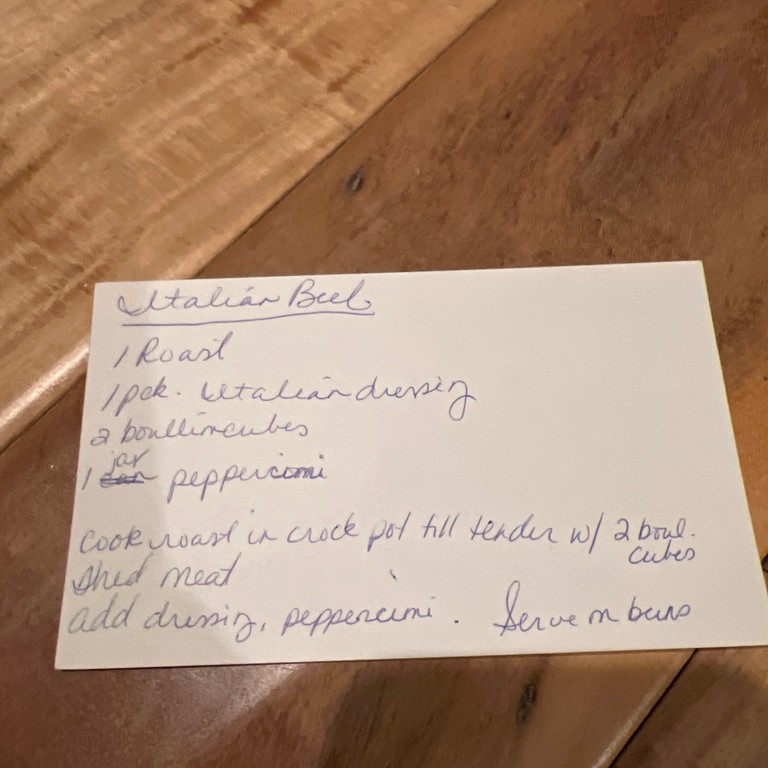 Italian Beef
1 Roast
1 pck. Italian dressing
2 boullincubes
1 jar peppercini
cook roast in crock pot till tender w/ 2 boul. cubes
Shed meat
add dressing, peppercini. Serve on buns